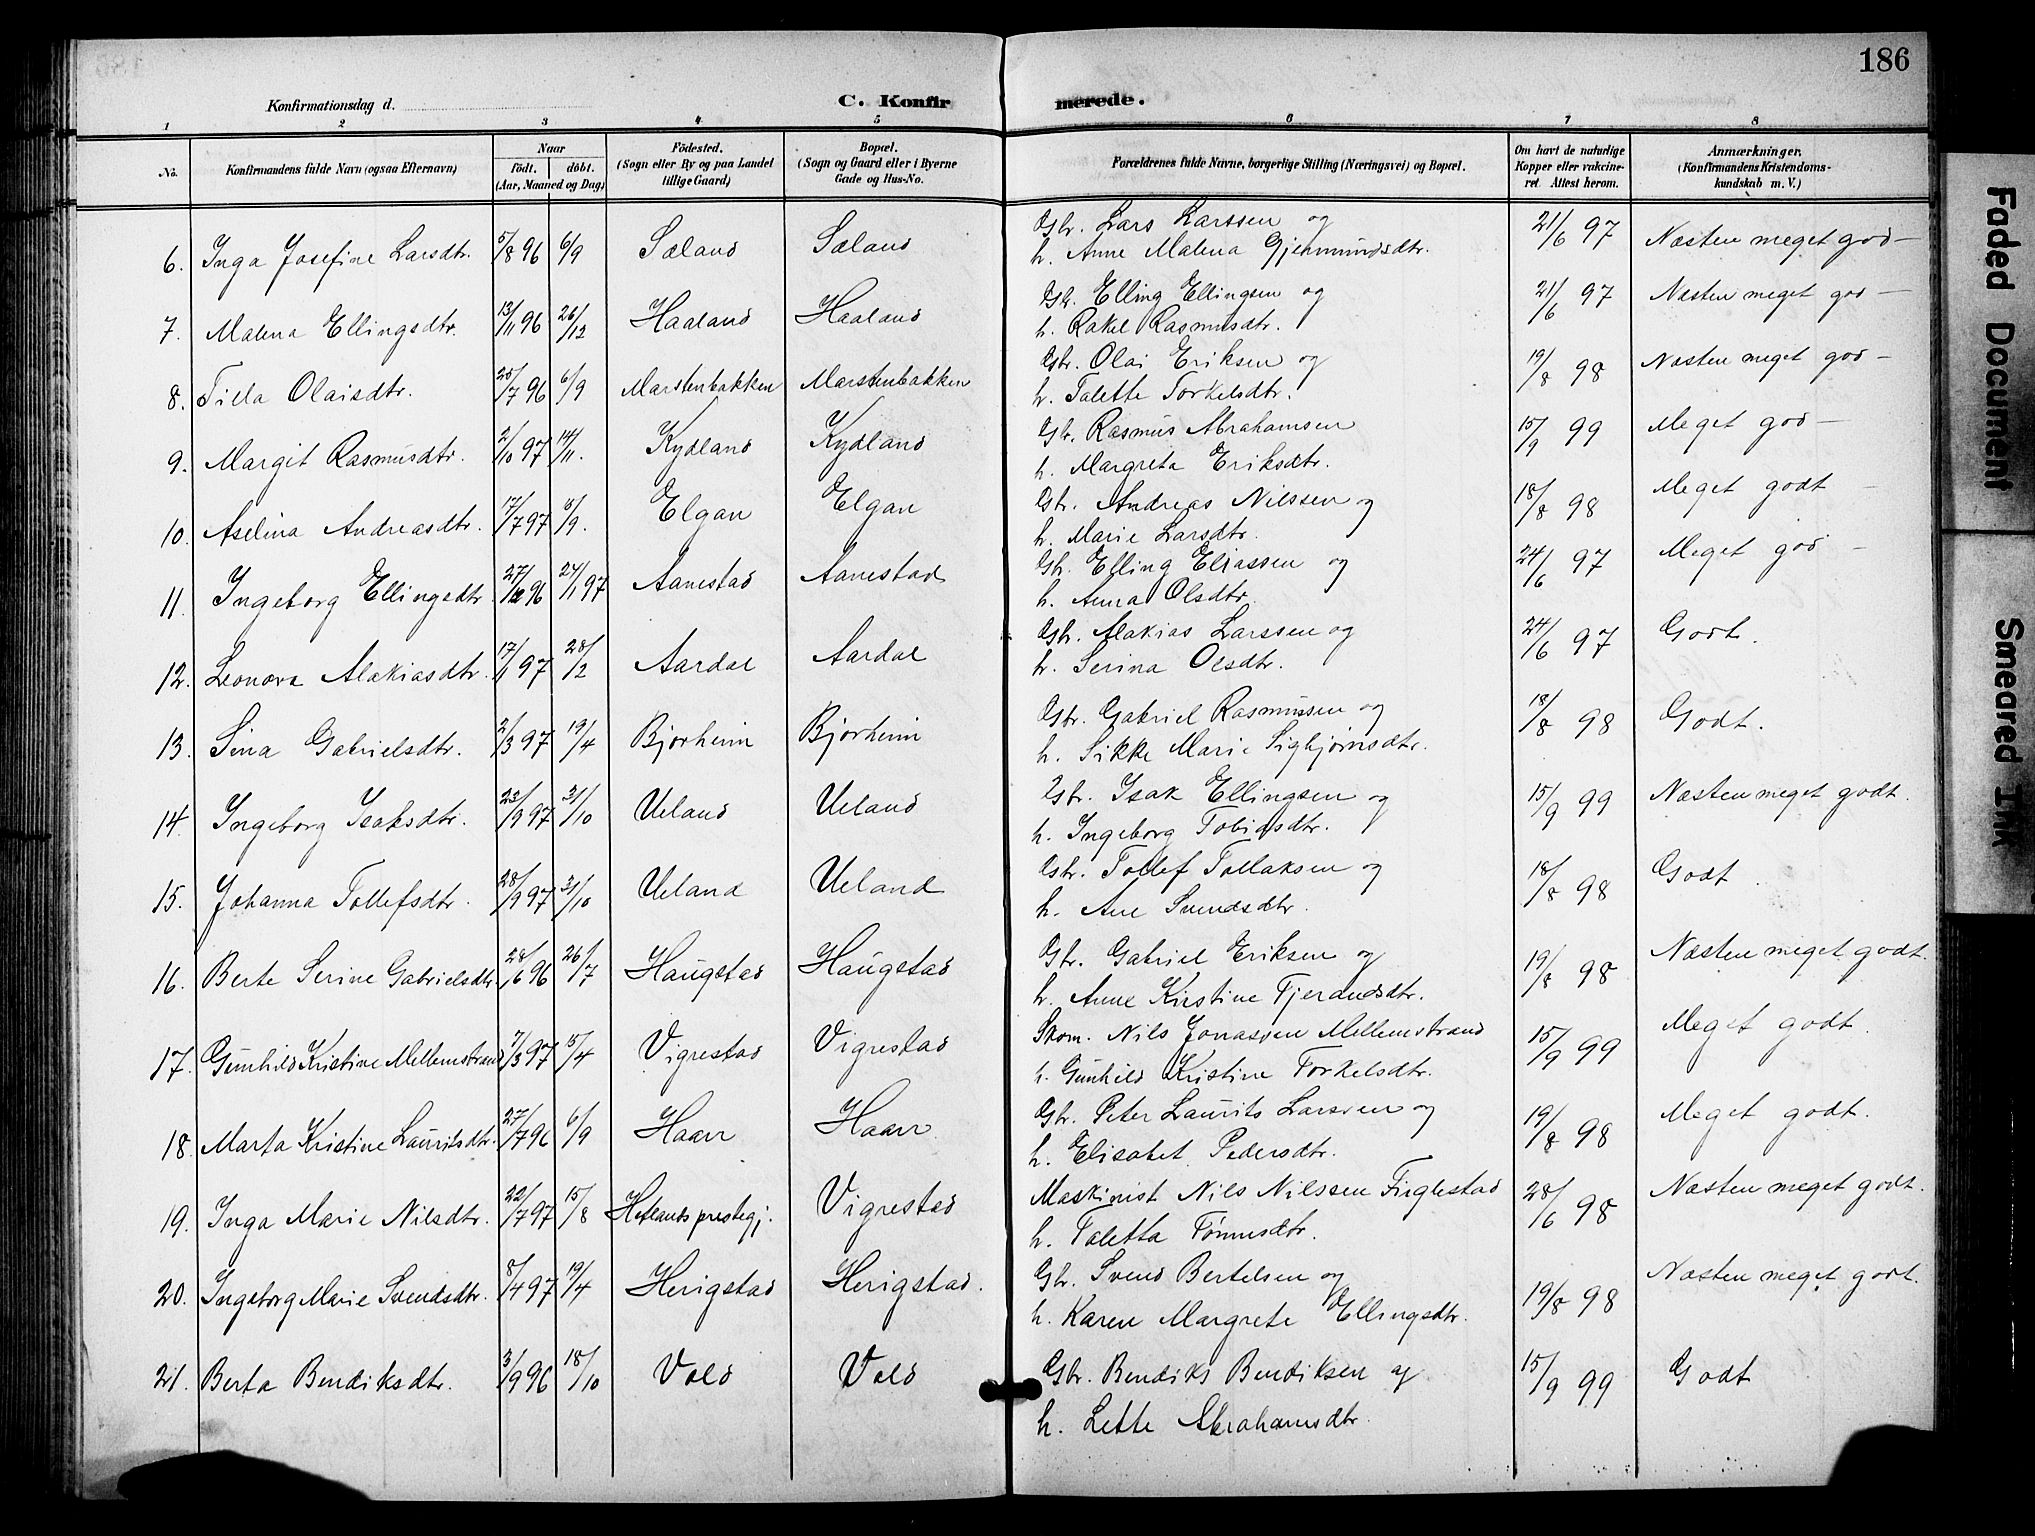 186
Konfirmationsdag d.
C. Konfirmerede.
1 2 3 4 5 6 7 8
No. Konfirmandens fulde Navn (ogsaa Efternavn) Naar født. døbt. (Aar, Maaned og Dag) Fødested. (Sogn eller By og paa Landet tillige Gaard) Bopæl. (Sogn og Gaard eller i Byerne Gade og Hus-No. Forældrenes fulde Navne, borgerlige Stilling (Næringsvei) og Bopæl. Om havt de naturlige Kopper eller vakcineret Attest herom. Anmærkninger. (Konfirmandens Kristendomskundskab m. V.)
6. Inga Josefine Larsdtr. 5/8 96 6/9 Sæland Sæland Gbr. Lars Larssen og 21/6 97 Næsten meget god —
h. Anne Malena Gjermundsdtr.
7. Malena Ellingsdtr. 13/11 96 26/12 Haaland Haaland Gbr. Elling Ellingsen og 21/6 97 Næsten meget god —
h. Rakel Rasmusdtr.
8. Tilla Olaisdtr. 20/7 96 6/9 Marstenbakken Marstenbakken Gbr. Olai Eriksen og 19/8 98 Næsten meget god —
h. Talette Torkelsdtr.
9. Margit Rasmusdtr. 2/10 97 14/11. Kydland Kydland Gbr. Rasmus Abrahamsen 15/9 99 Meget god —
h. Margreta Eriksdtr.
10. Aselina Andreasdtr. 17/7 97 /9. Elgan Elgan Gbr. Andreas Nilssen og 18/8 98 Meget godt —
h. Marie Larsdtr.
11. Ingeborg Ellingsdtr. 27/12 96 24/1 97 Aanestad Aanestad Gbr. Elling Eliassen og 24/6 97 Meget god —
h. Anna Olsdtr.
12. Leonora Alakiasdtr. 17/1 97 28/2 Aardal Aardal Gbr. Alakias Larssen og 24/6 97 Godt.
h. Serina Olsdtr.
13. Sina Gabrielsdtr. 2/3 97 19/4 Bjorheim Bjorheim Gbr. Gabriel Rasmussen og 18/8 98 Godt.
h. Sikke Marie Sigbjørnsdtr.
14. Ingeborg Isaksdtr. 23/9 97 31/10 Ueland Ueland Gbr. Isak Ellingsen og 15/9 99 Næsten meget godt.
h. Ingeborg Tobiasdtr.
15. Johanna Tollefsdtr. 28/9 97 31/10 Ueland Ueland Gbr. Tollef Tollaksen og 18/8 98 Godt.
h. Ane Svendsdtr.
16. Berte Serine Gabrielsdtr. 28/6 96 26/7 Haugstad Haugstad Gbr. Gabriel Eriksen og 19/8 98 Næsten meget godt.
h. Anne Kirstine Tjerandsdtr.
17. Gunhild Kristine Mellemstrand 7/3 97 15/4 Vigrestad Vigrestad Skom. Nils Jonassen Mellemstrand 15/9 99 Meget godt.
h. Gunhild Kristine Torkelsdtr.
18. Marta Kristine Lauritsdtr. 27/7 96 6/9 Haarr Haarr Gbr. Peter Laurits Larssen og 19/8 98 Meget godt.
h. Elisabet Pedersdtr.
19. Inga Marie Nilsdtr. 22/7 97 15/8 Hetlands prestegj. Vigrestad Maskinist Nils Nilssen Tirglestad 28/6 98 Næsten meget godt.
h. Taletta Tønnesdtr.
20. Ingeborg Marie Svendsdtr. 8/4 97 19/4 Herigstad Herigstad. Gbr. Svend Bertelsen og 19/8 98 Næsten meget godt.
h. Karen Margrete Ellingsdtr.
21. Berta Bendiksdtr. 3/9 96 18/10 Vold Vold Gbr. Bendiks Bendiksen og 15/9 99 Godt
h. Lette Abrahamsdtr.
Faded Document
Smeared Ink